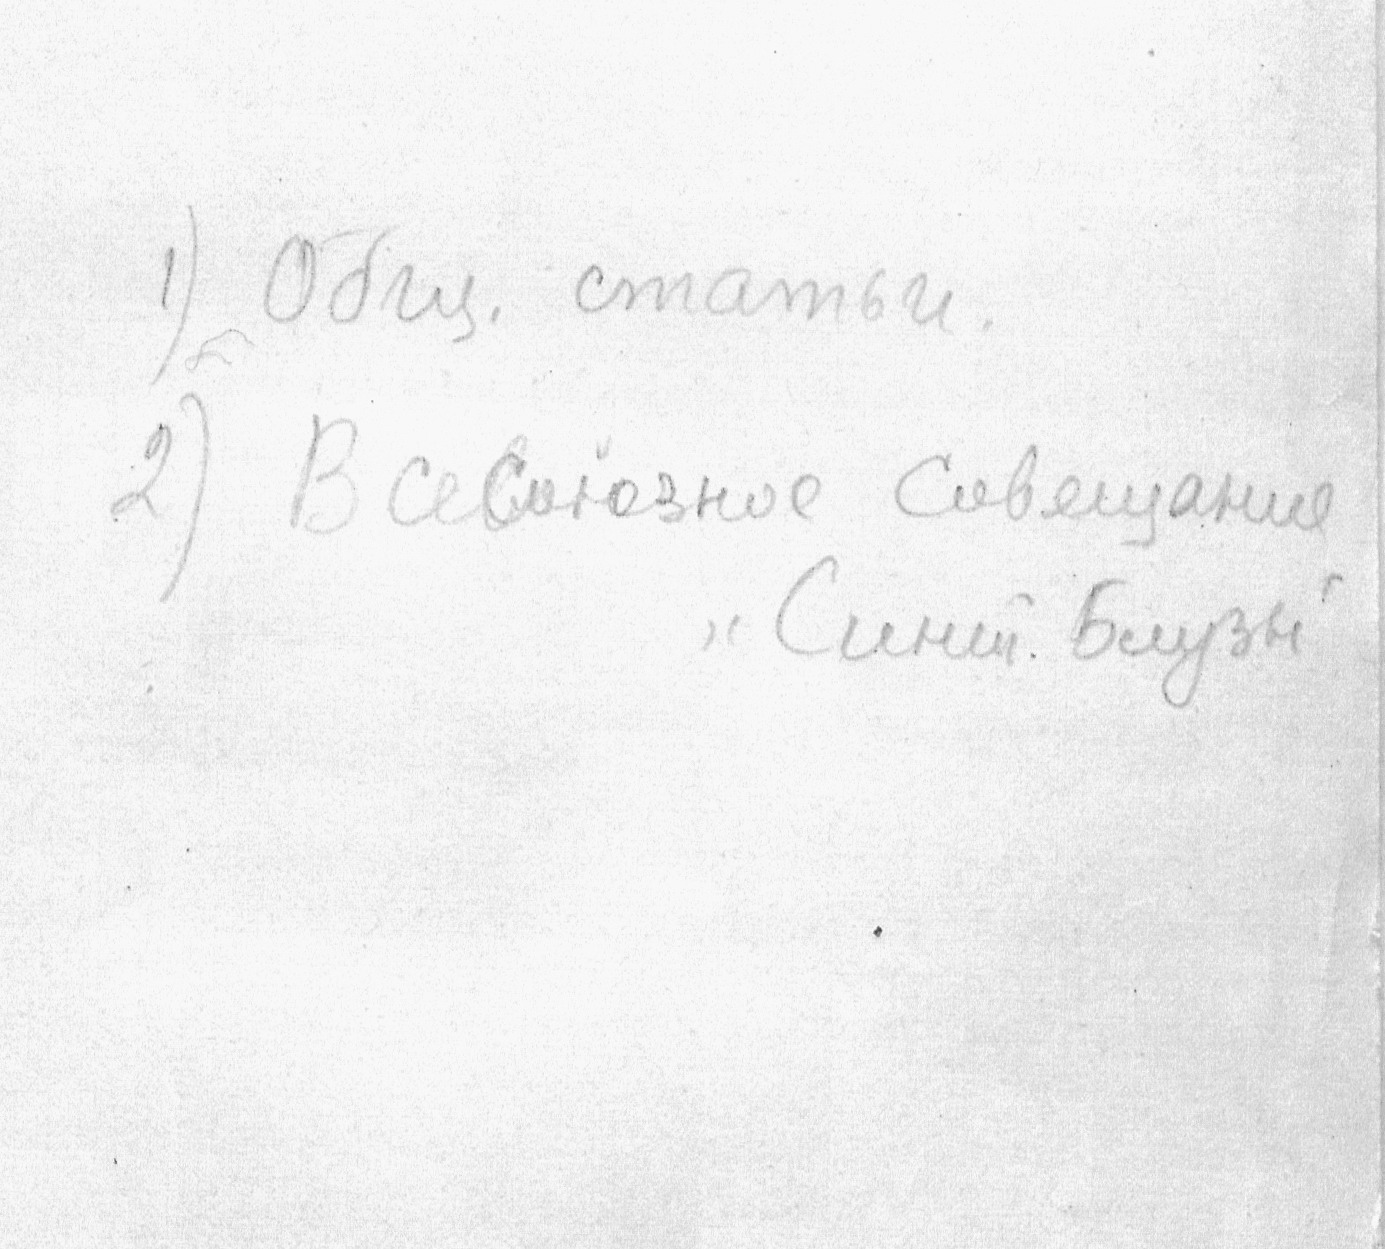 1) Общ. статьи.
2) Всесоюзное совещание
„Синей Блузы"